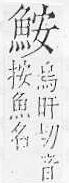 鮟
烏旰切音
按魚名